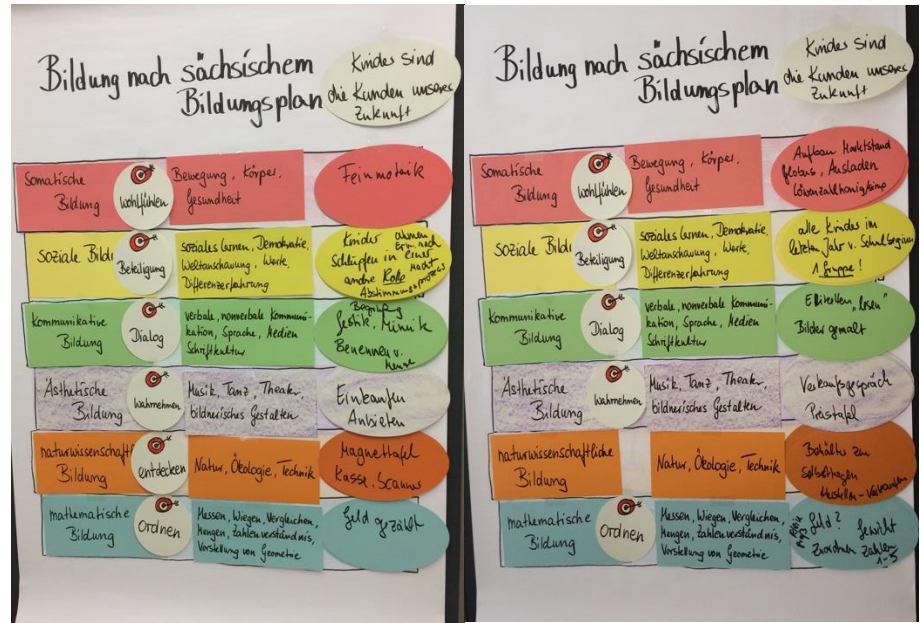 Bildung nach sächsischem
Bildungsplan
Kinder sind
die Kunden unserer
Zukunft
Somatische
Bildung
Wohlfühlen
Bewegung, Körper,
Gesundheit
Feinmotorik
Soziale Bild
Beteiligung
soziales Lernen, Demokratie,
Weltanschauung, Werte,
Differenzerfahrung
Kinder ahmen
Erw. nach
Schlüpfen in einer
andre Rolle
Abstimmungsprozess
kommunikative
Bildung
Dialog
verbale, nonverbale Kommuni-
kation, Sprache, Medien
Schriftkultur
Begrüßung
Gestik, Mimik
Benennen v.
Ästhetische
Bildung
Wahrnehmen
Musik, Tanz, Theater,
bildnerisches Gestalten
Einkaufen
Anbieten
naturwissenschaftl
Bildung
entdecken
Natur, Ökologie, Technik
Magnettafel
Kasse, Scanner
mathematische
Bildung
Ordnen
Messen, Wiegen, Vergleichen,
Mengen, Zahlenverständnis,
Vorstellung von Geometrie
Geld gezählt
Bildung nach sächsischem
Bildungsplan
Kinder sind
die Kunden unserer
Zukunft
Somatische
Bildung
Wohlfühlen
Bewegung, Körper,
Gesundheit
Aufbau Marktstand
Ausladen
Löwenzahlhonig
Soziale Bild
Beteiligung
soziales Lernen, Demokratie,
Weltanschauung, Werte,
Differenzerfahrung
alle Kinder im
letzten Jahr v. Schulbeginn
1 Gruppe!
kommunikative
Bildung
Dialog
verbale, nonverbale Kommuni-
kation, Sprache, Medien
Schriftkultur
Etiketten "lesen"
Bilder gemalt
Ästhetische
Bildung
Wahrnehmen
Musik, Tanz, Theater,
bildnerisches Gestalten
Verkaufsgespräch
Preistafel
naturwissenschaftliche
Bildung
Natur, Ökologie, Technik
Behälter zum
Herstellen - Verkaufen
mathematische
Bildung
Ordnen
Messen, Wiegen, Vergleichen,
Mengen, Zahlenverständnis,
Vorstellung von Geometrie
Geld? Gewicht
Zuordnen Zahlen
1-5